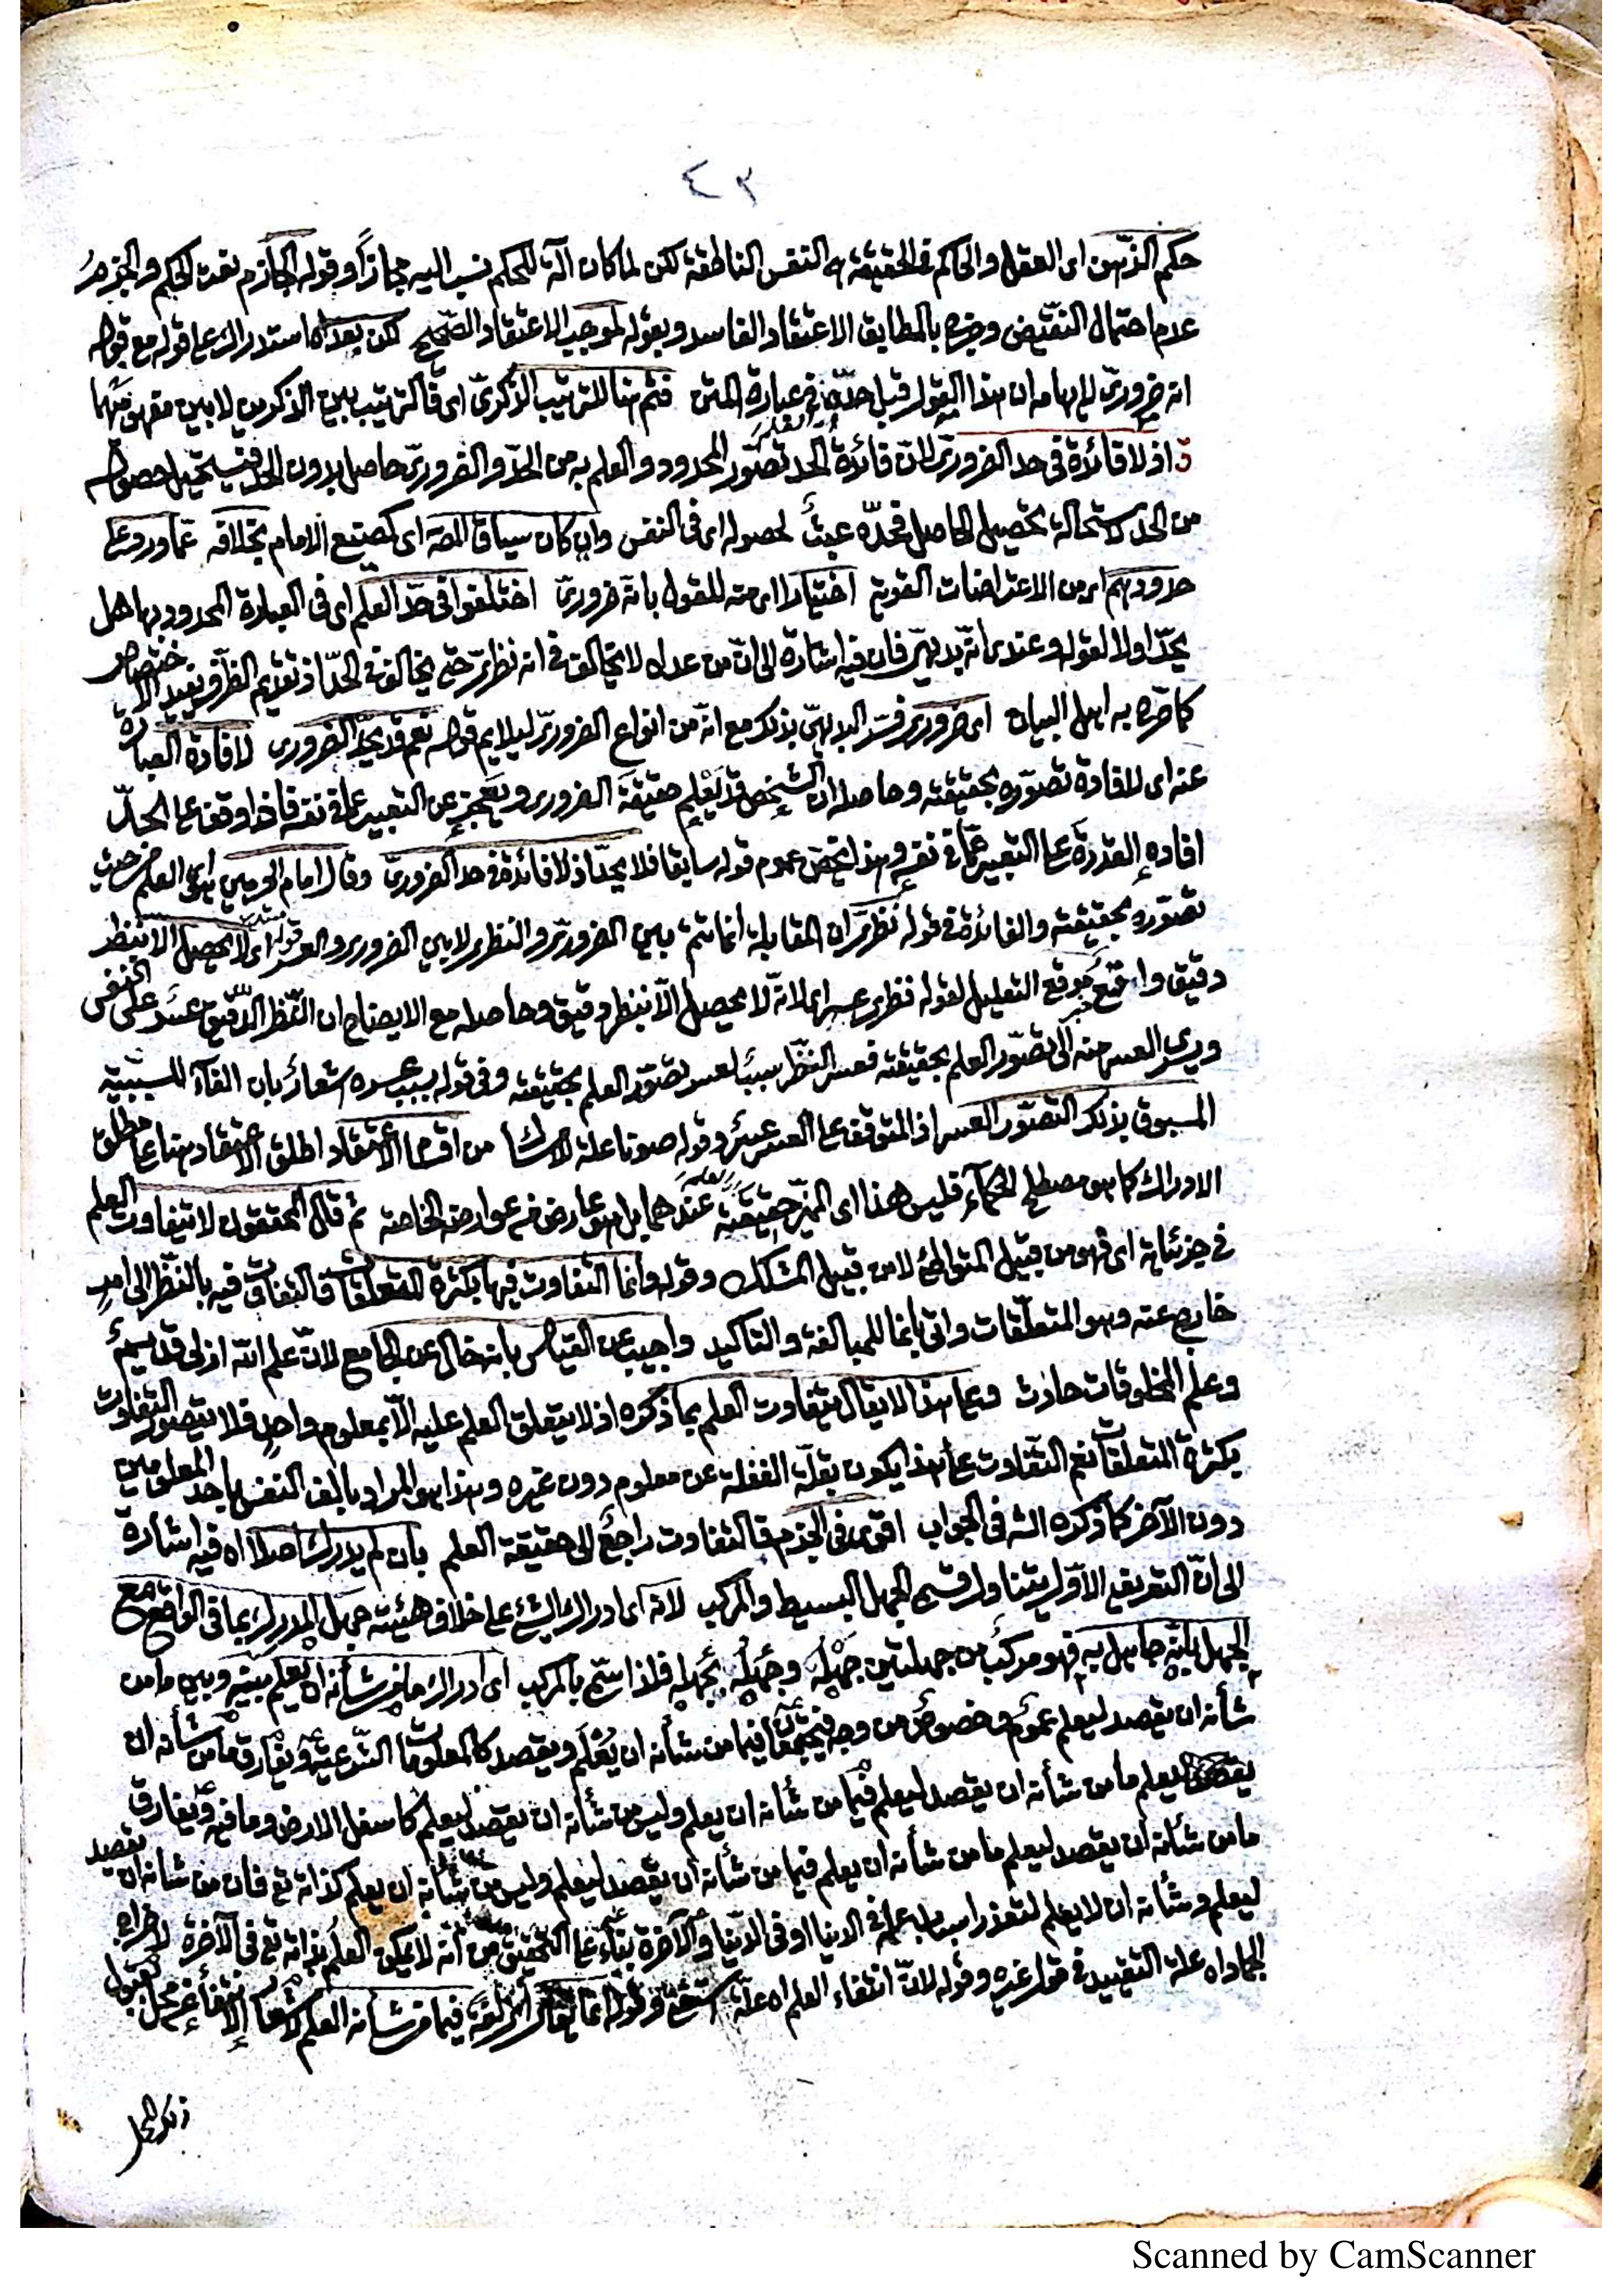 ٤٣
حكم الذهن اى العقل والحاكم فى الحقيقة هو النفس الناطقة لكن لما كان آلة للحكم نسب اليه مجازاً وقوله الجازم نعت الحكم والجزم
عدم احتمال النقيض وخرج بالمطابق الاعتقاد الفاسد وبقوله لموجب الاعتقاد الصحيح لكن بعد اه استدراك على قوله مع قوله
انه ضرورىّ لايهامه ان هذا القول قبل حدّه فى عبارة المتن فثم هنا للترتيب الذكرىّ اى فالترتيب بين الذكرين لا بين مفهوميهما
اذ لا فائدة فى حد الضرورىّ لانّ فائدة الحد تصوّر المحدود والعلم به من الحدّ والضرورىّ حاصل بدون الحد فيستحيل حصوله
من الحدّ لاستحالة تحصيل الحاصل فحدّه عبث لحصوله اى فى النفس وان كان سياق المصـ اى كصنيع الامام بخلافه عمّا ورد على
حدودهم اى من الاعتراضات القوية اختيارا اى منه للقول بانّه ضرورىّ اختلفوا فى حدّ العلم اى فى العبارة المحدود بها هل
يحدّ اولا لقوله وعندى انّه بديهىّ فان فيه اشارة الى انّ من عداه لا يخالف فى انه نظرىّ حتى يخالف فى الحدّ اذ تقديم الظرف يفيد الاختصاص
كما صرّح به اهل البيان اى ضرورى فسّر البديهىّ بذلك مع انّه من انواع الضرورىّ ليلايم قوله نعم قد يحدّ الضرورى لافادة العبارة
عنه اى لافادة تصوّره بحقيقته وحاصله ان الشخص قد يَعْلم حقيقة الضرورى ويعجز عن التعبير عمّا فى نفسه فاذا وقف على الحدّ
افاده القدرة على التعبير عمّا فى نفسه وهذا يخصّ عموم قوله سابقا فلا يحدّ اذ لا فائدة فى حد الضرورىّ وقال امام الحرمين اى العلم من حيث
تصوّره بحقيقته والفائدة فى قوله نظرىّ ان المقابلة انما تتم بين الضرورىّ والنظرى لا بين الضرورى والعسر قوله اى لا يحصل الا بنظر
دقيق واقع موقع التعليل لقوله نظرى عسر اى لانّه لا يحصل الّا بنظر دقيق وحاصله مع الايضاح ان النّظر الدّقيق عسر على النفس
ويسرى العسر منه الى تصوّر العلم بحقيقته فعسر النظر سبب لعسر تصوّر العلم بحقيقته وفى قوله بسبب عسره اشعار بان الفآء للسببيّة
المسبوق بذلك التصوّر العسر اذ المتوقف على العسر عسر وقوله صونا علة لامساك من اقسام الاعتقاد اطلق الاعتقاد هنا على مطلق
الادراك كما هو مصطلح الحكمآء فليس هذا اى المميّز حقيقته عندهما بل هو عارض من عوارضه الخاصة ثم قال المحققون لا يتفاوت العلم
فى جزئياته اى فهو من قبيل المتواطئ لا من قبيل المشكك وقوله وانما التفاوت فيها بكثرة المتعلقات فالتفاوت فيه بالنظر الى امرٍ
خارج عنه وهو المتعلّقات واتى بانما للمبالغة والتاكيد واجيب عن القياس بانه خال عن الجامع لانّ علم اللّه ازلى قديم
وعلم المخلوقات حادث وعلى هذا لا يقال يتفاوت العلم بما ذكره اذ لا يتعلق العلم عليه الّا بمعلوم واحد فلا يتصور التفاوت
بكثرة المتعلقات نعم التفاوت على هذا يكون بقلّة الغفلة عن معلوم دون غيره وهذا هو المراد بالف النفس باحد المعلومين
دون الآخر كما ذكره الشـ فى الجواب اقوى فى الجزم فالتفاوت راجع الى حقيقة العلم بان لم يدرك اصلا اه فيه اشارة
الى انّ التعريف الاوّل يتناول قسمى الجهل البسيط والمركب لانه اى ادراك الشئ على خلاف هيئته جهل المدرك بما فى الواقع مع
الجهل بانّه جاهل به فهو مركب من جهلين جهله وجهله بجهله فلذا سمّى بالمركب اى ادراك ما من شأنه ان يعلم بينه وبين ما من
شأنه ان يقصد ليعلم عموم وخصوص من وجه فيجتمعان فيما من شأنه ان يُعْلَم ويقصد كالمعلومات الشّرعيّة ويفارق ما من شأنه ان
يعلم ما من شأنه ان يقصد ليعلم فيما من شأنه ان يعلم وليس من شأنه ان يقصد ليعلم كاسفل الارض وما فيه ويفارق
ما من شأنه ان يقصد ليعلم ما من شأنه ان يعلم فيما من شأنه ان يقصد ليعلم وليس من شأنه ان يعلم كذاته تع فان من شأنه ان يقصد
ليعلم وشأنه ان لا يعلم لتعذر اسباب علمه فى الدنيا او فى الدّنيا والآخرة بناء على التحقيق من أنه لا يمكن العلم بذاته تع فى الآخرة لاخراج
الجماد اه علة التقييد فى قول غيره وقوله لانّ انتفاء العلم اه علّة وقوله انما يقال فيما من شأنه العلم
ذلك المحل